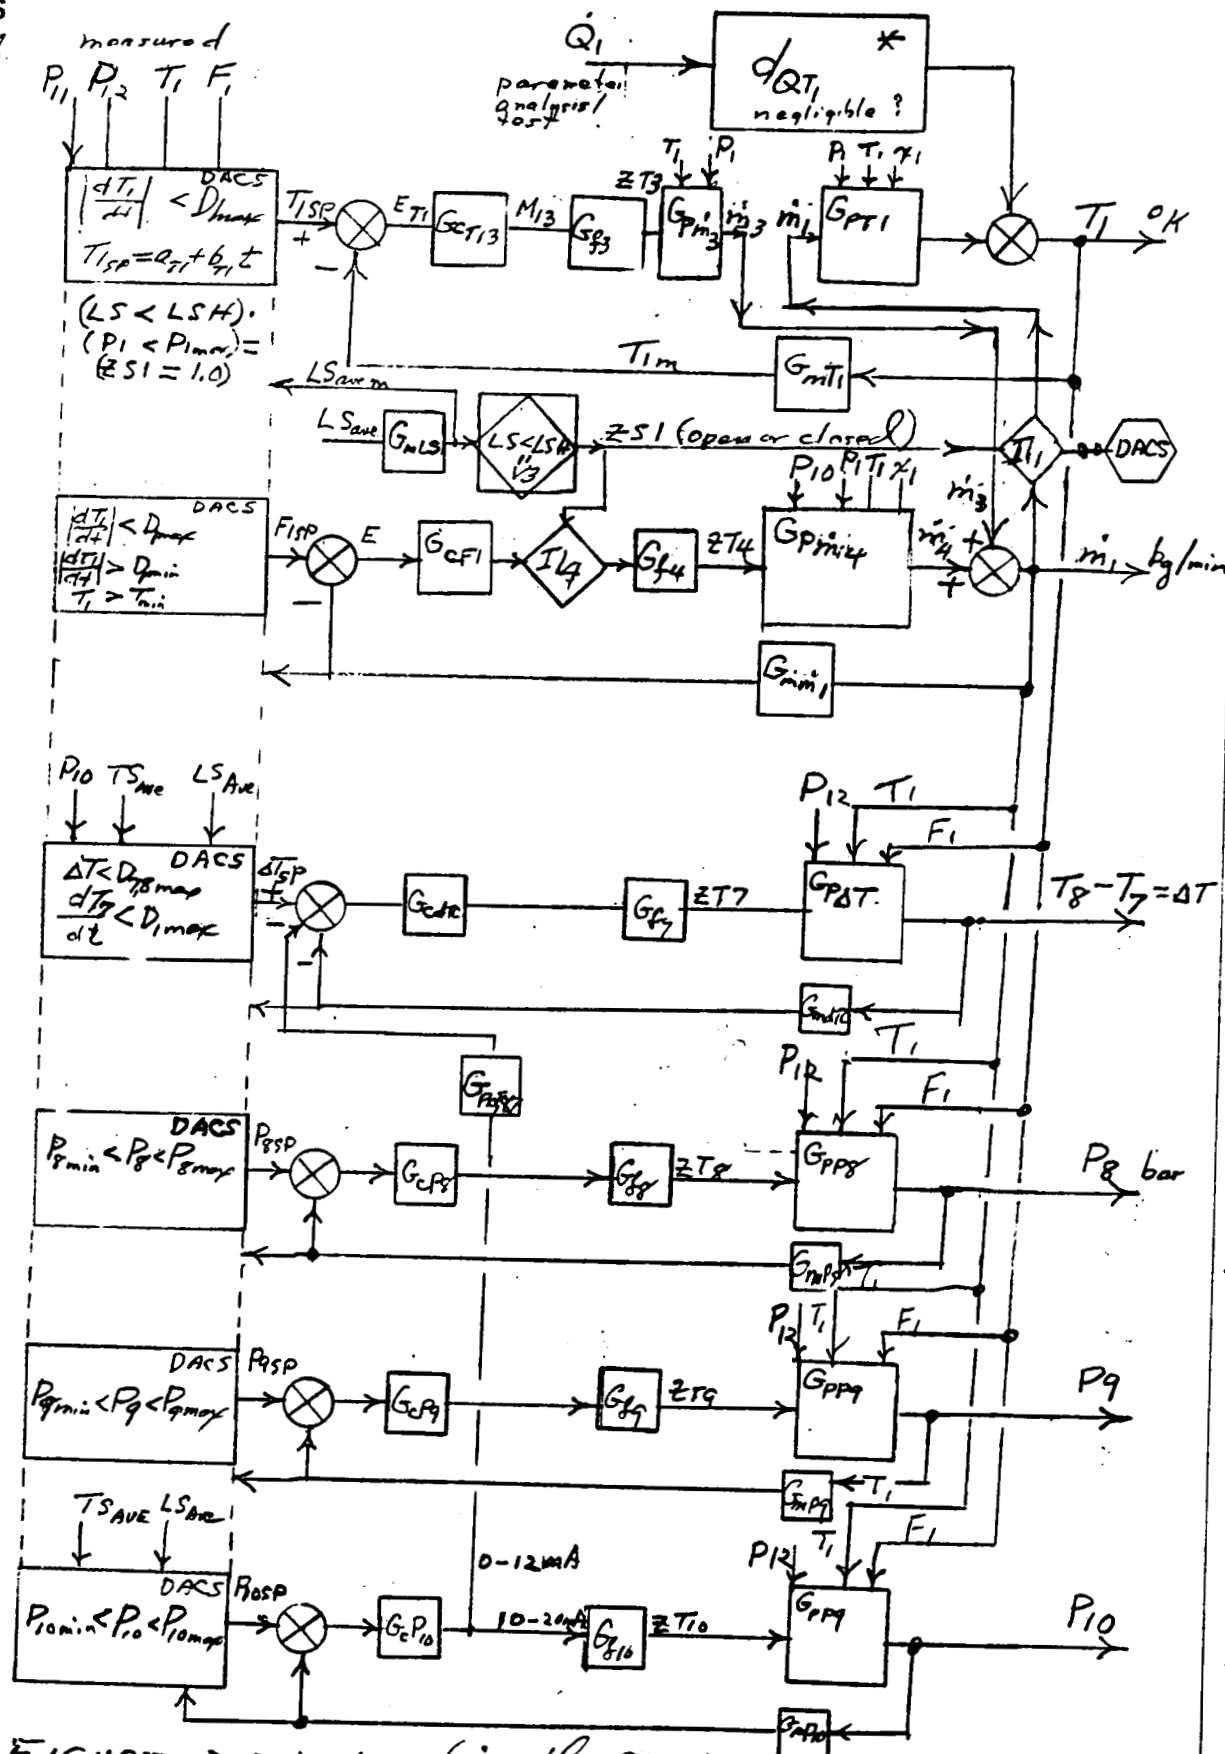 S
measured
P11 P12 T1 F1
Q̇1
parameter
analysis/
test
*
dQT1
negligible ?
DACS
|dT1/dt| < D1max
T1SP = aT1 + bT1 t
T1SP
+
−
ET1
GcT13
M13
Gf3
ZT3
T1 P1
GPṁ3
ṁ3
ṁ1
P1 T1 x1
GPT1
T1 °K
(LS < LSH).
(P1 < P1max) =
(ZS1 = 1.0)
T1m
GmT1
LSave m
LSave
GmLS
LS<LSH
ZS1 (open or closed)
I11
DACS
DACS
|dT1/dt| < Dmax
|dT1/dt| > Dmin
T1 > Tmin
F1SP
−
E
GCF1
IL4
Gf4
ZT4
P10 P1 T1 x1
GPṁ4
ṁ3
ṁ4
+
+
ṁ1 kg/min
Gmṁ1
P10 TSAve LSAve
DACS
ΔT < D78max
dT7/dt < D1max
ΔTSP
+
−
−
Gcdtc
Gf7
ZT7
P12 T1
F1
GPΔT
T8 − T7 = ΔT
Gmdtc
P12 T1
F1
DACS
P8min < P8 < P8max
P8SP
GcP8
Gf8
ZT8
GPP8
P8 bar
GmP8
T1
P12 T1 F1
DACS
P9min < P9 < P9max
P9SP
GcP9
Gf9
ZT9
GPP9
P9
GmP9
T1
TSAVE LSAve
0-12mA
P12 T1 F1
DACS
P10min < P10 < P10max
P10SP
GcP10
10-20mA
Gf10
ZT10
GPP9
P10